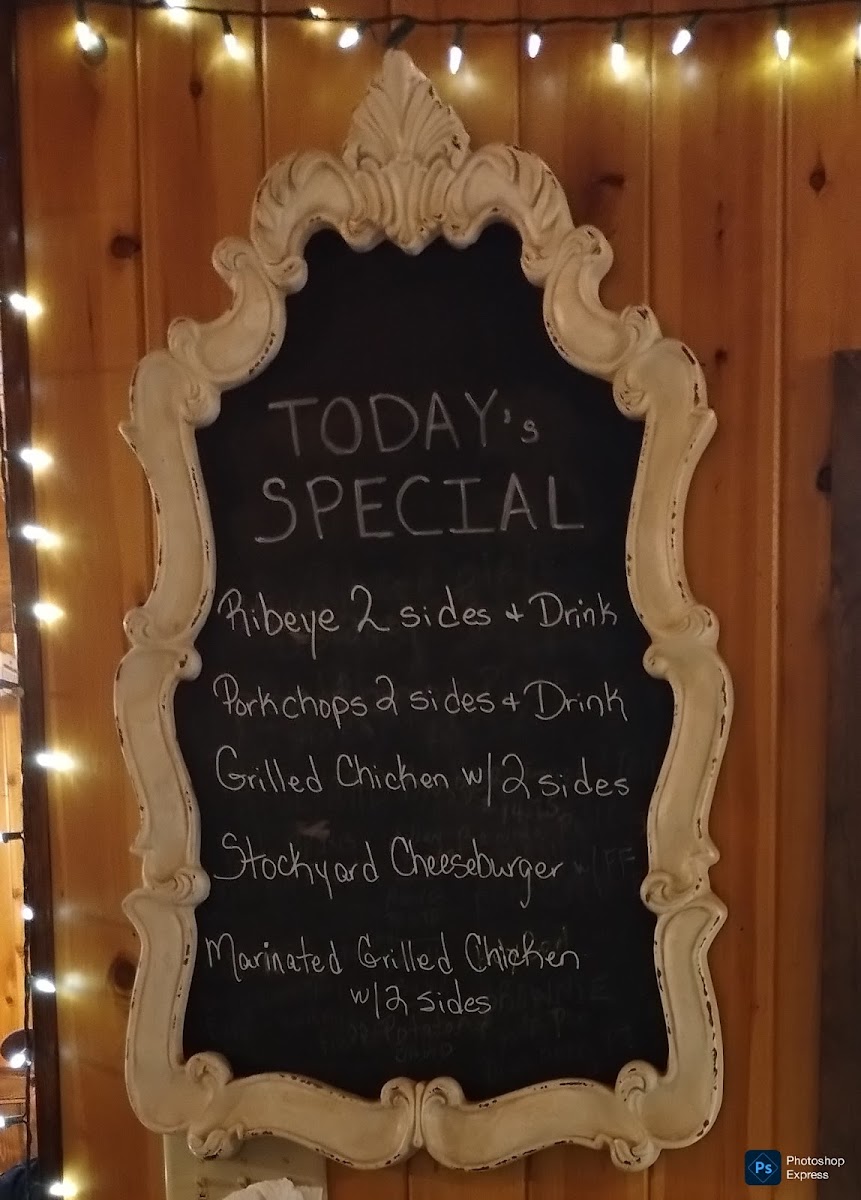 TODAY's
SPECIAL
Ribeye 2 sides + Drink
Porkchops 2 sides + Drink
Grilled Chicken w/2 sides
Stockyard Cheeseburger w/FF
Marinated Grilled Chicken
w/2 sides
Ps
Photoshop
Express